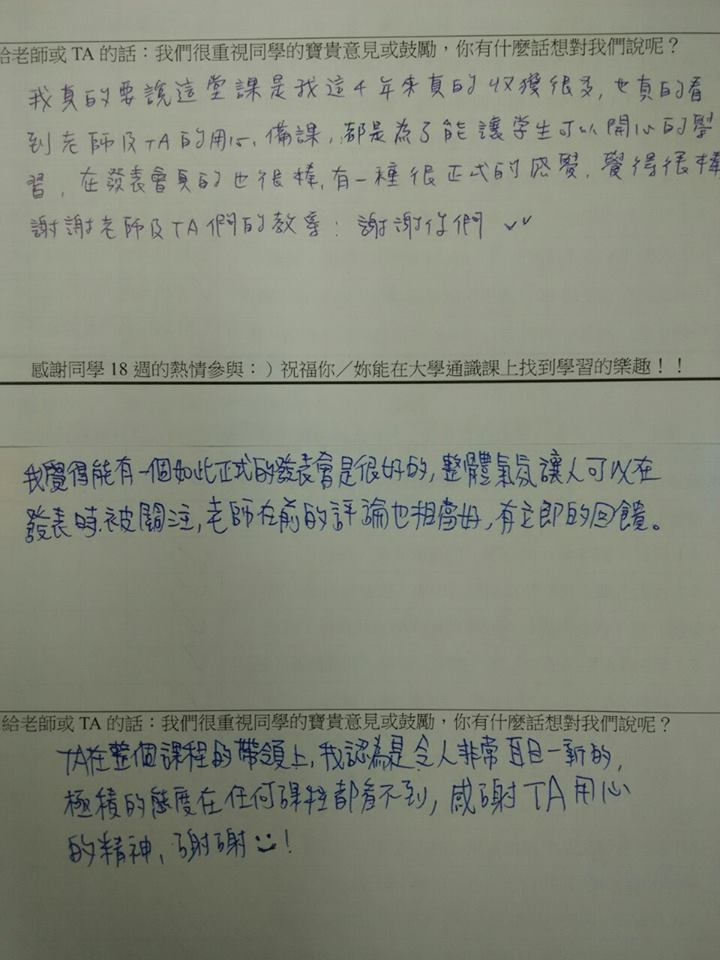 給老師或 TA 的話：我們很重視同學的寶貴意見或鼓勵，你有什麼話想對我們說呢？
我真的要說這堂課是我這4年來真的收獲很多，也真的看
到老師及TA的用心、備課，都是為了能讓學生可以開心的學
習，在發表會真的也很棒，有一種很正式的感覺，覺得很棒
謝謝老師及TA們的教導：謝謝你們
感謝同學 18 週的熱情參與：）祝福你／妳能在大學通識課上找到學習的樂趣！！
我覺得能有一個如此正式的發表會是很好的，整體氣氛讓人可以在
發表時被關注，老師在前的評論也相當好，有立即的回饋。
給老師或 TA 的話：我們很重視同學的寶貴意見或鼓勵，你有什麼話想對我們說呢？
TA在整個課程的帶領上，我認為是令人非常耳目一新的，
極積的態度在任何課程都看不到，感謝TA用心
的精神，謝謝！